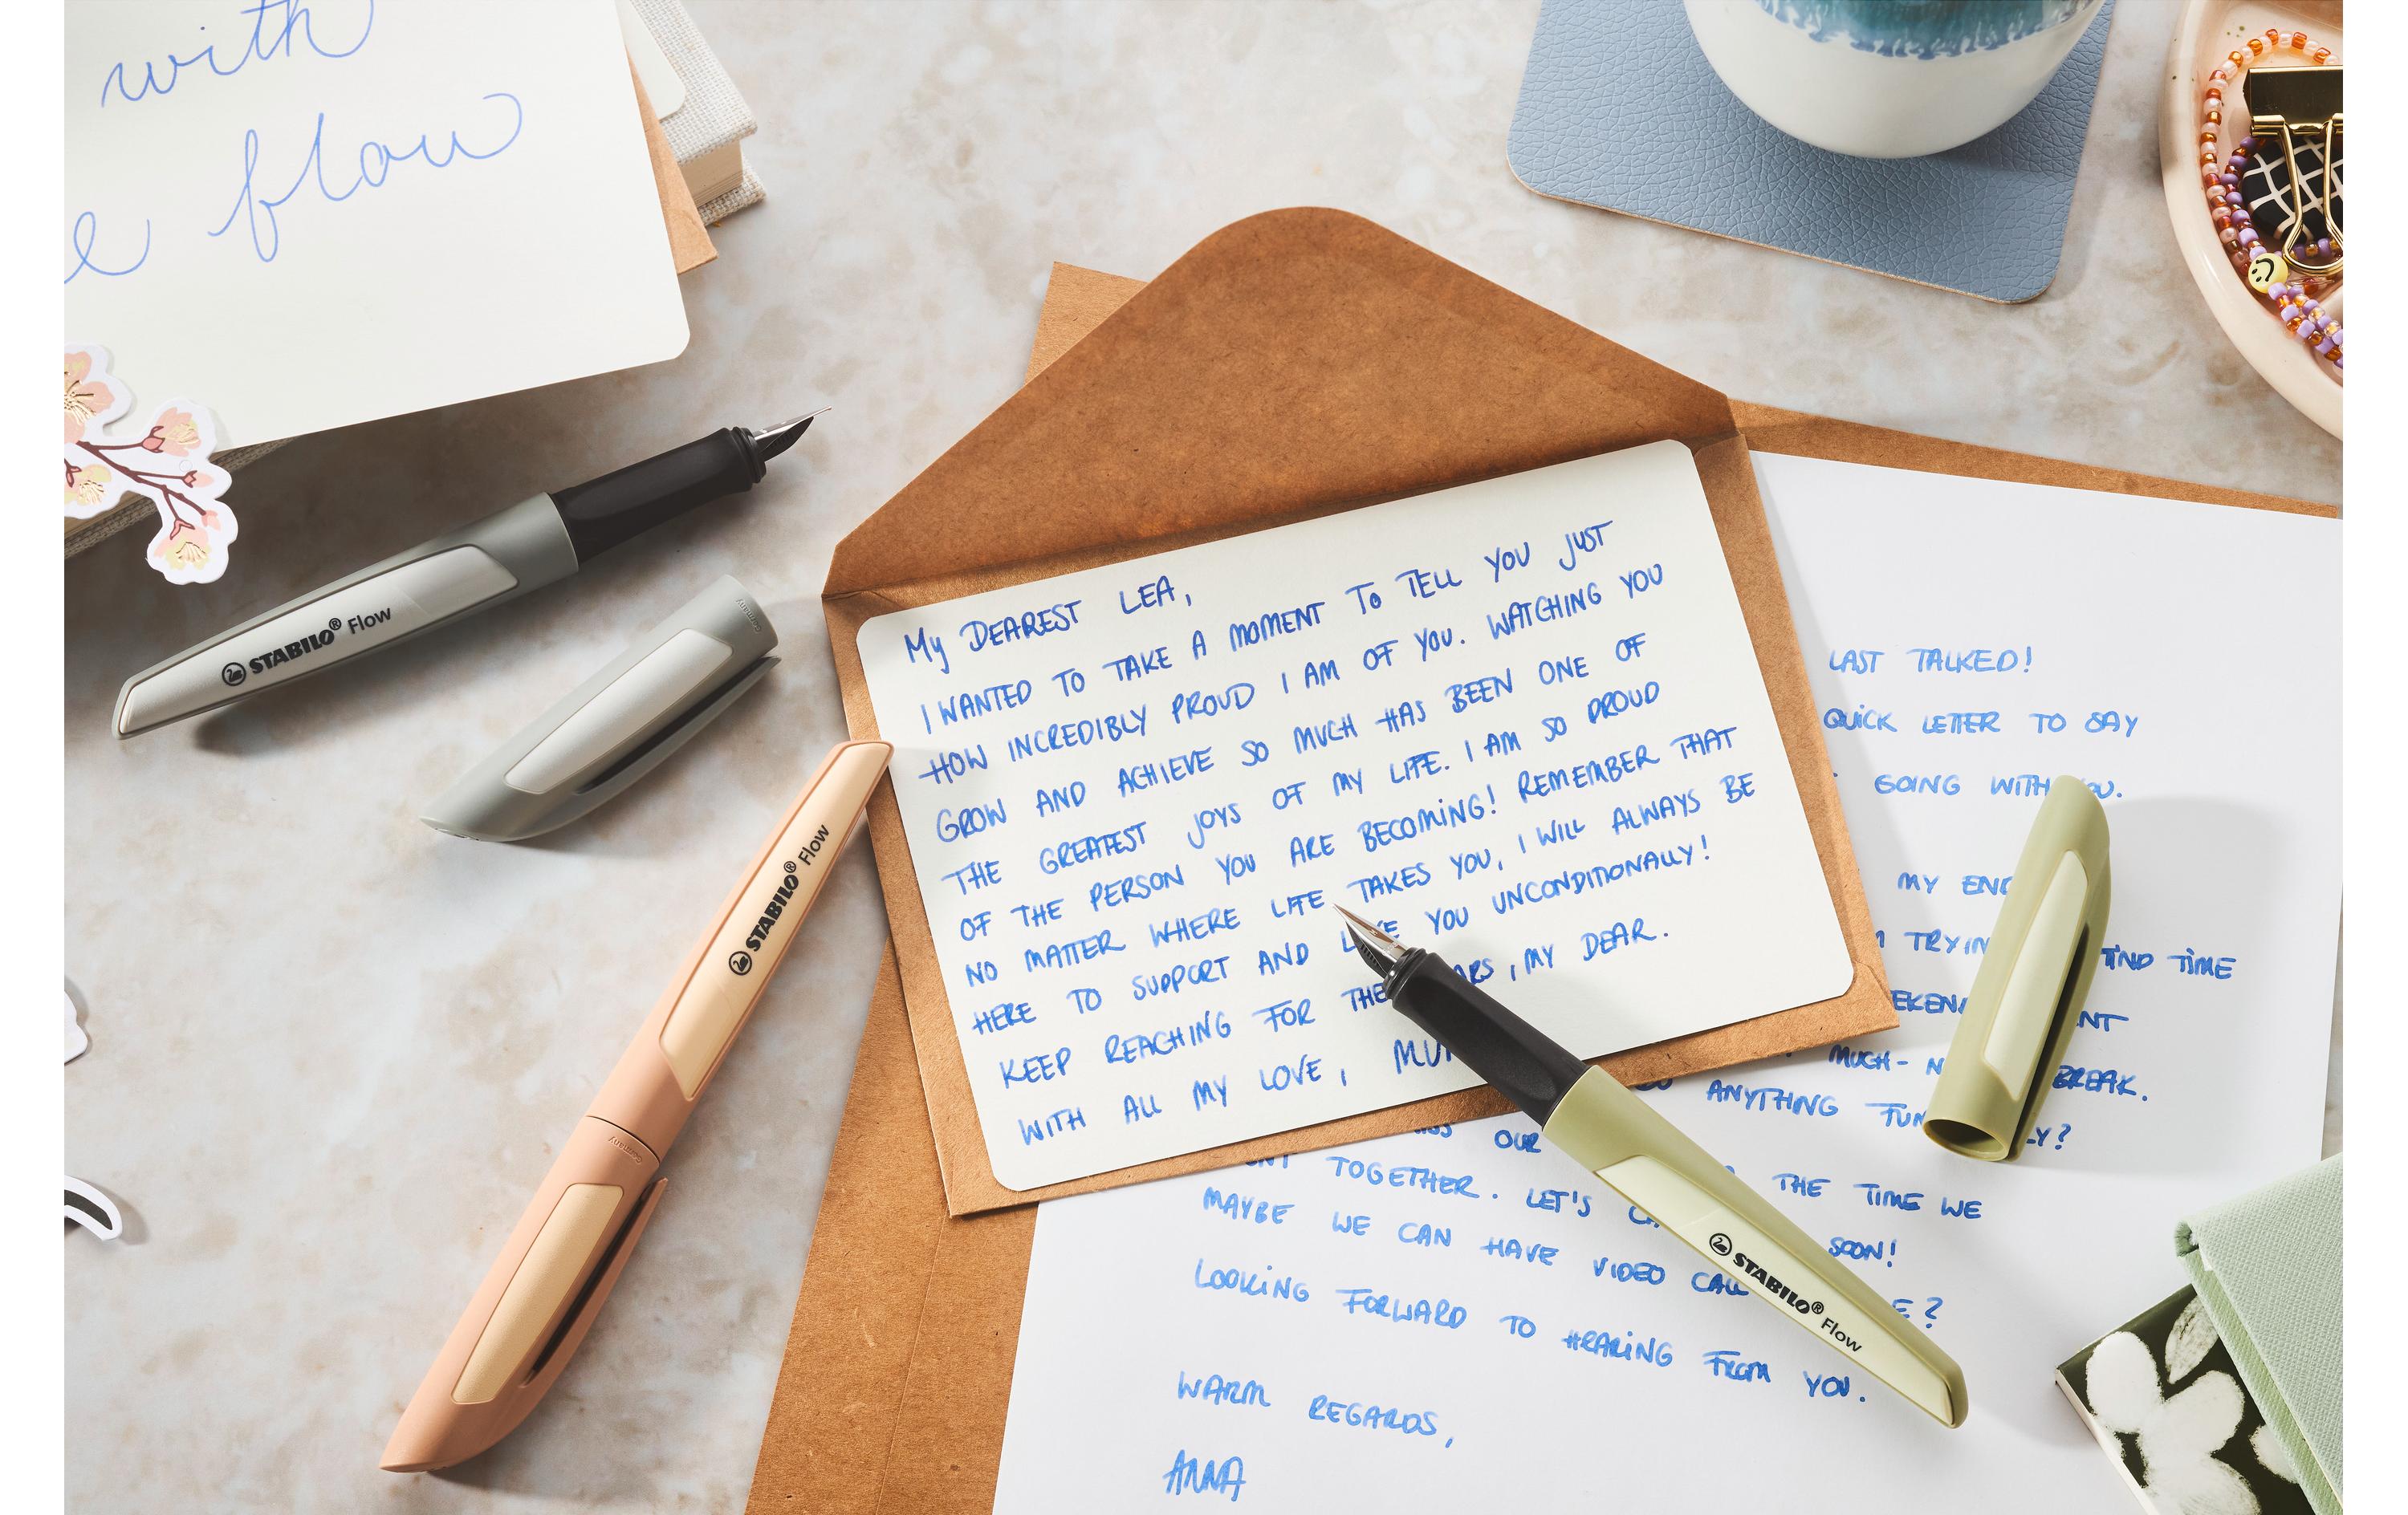 with
e flow
STABILO® Flow
Germany
STABILO® Flow
Germany
MY DEAREST LEA,
I WANTED TO TAKE A MOMENT TO TELL YOU JUST
HOW INCREDIBLY PROUD I AM OF YOU. WATCHING YOU
GROW AND ACHIEVE SO MUCH HAS BEEN ONE OF
THE GREATEST JOYS OF MY LIFE. I AM SO PROUD
OF THE PERSON YOU ARE BECOMING! REMEMBER THAT
NO MATTER WHERE LIFE TAKES YOU, I WILL ALWAYS BE
HERE TO SUPPORT AND YOU UNCONDITIONALLY!
KEEP REACHING FOR THE , MY DEAR.
WITH ALL MY LOVE,
LAST TALKED!
QUICK LETTER TO SAY
GOING WITH
MY
TIME
MUCH- BREAK.
ANYTHING
OUR
TOGETHER. LET'S THE TIME WE
MAYBE WE CAN HAVE VIDEO CALL SOON!
LOOKING FORWARD TO HEARING FROM YOU.
WARM REGARDS,
ANNA
STABILO® Flow